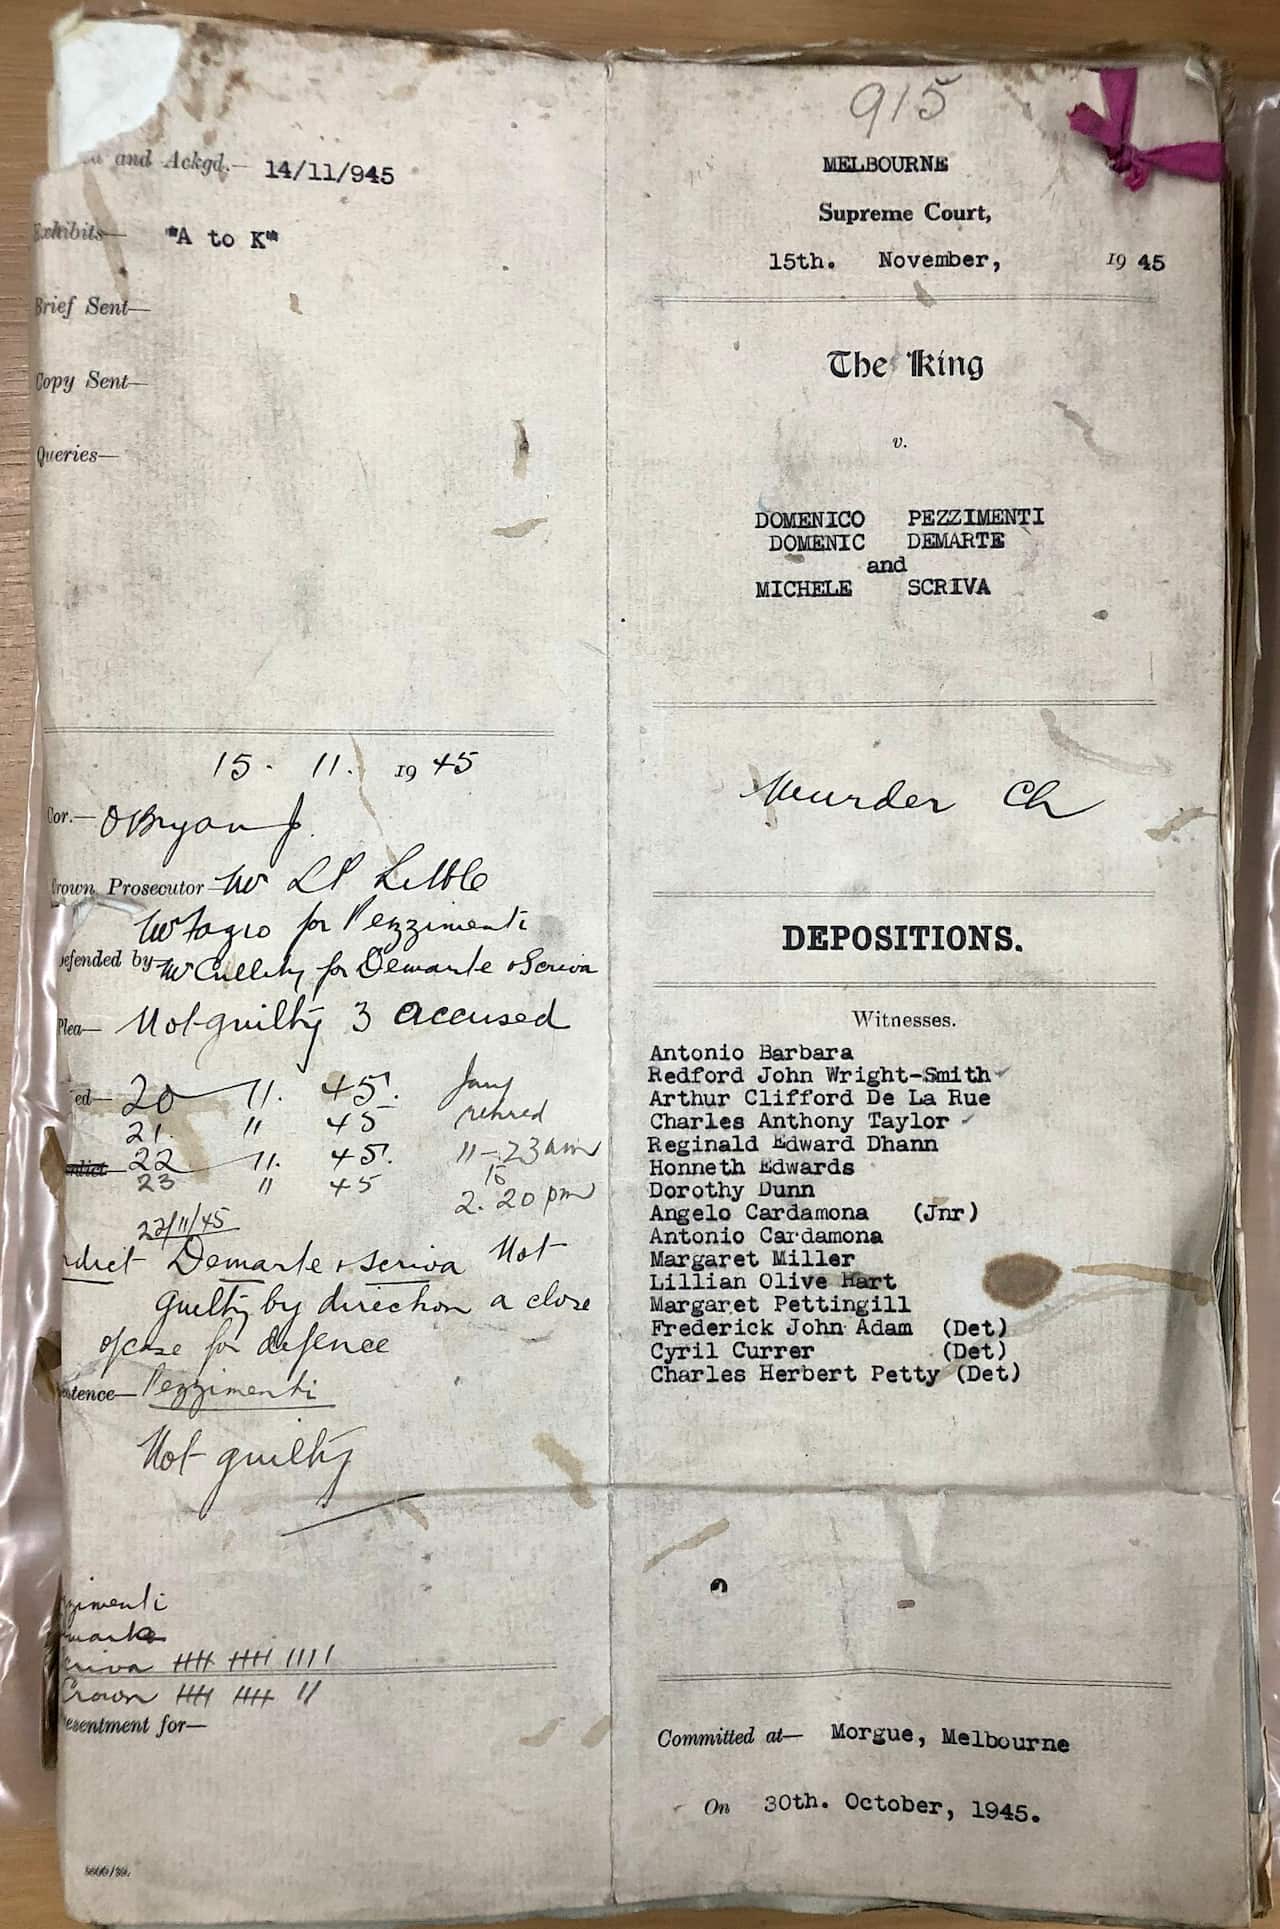 and Ackgd.— 14/11/945
Exhibits— "A to K"
Brief Sent—
Copy Sent—
Queries—
15. 11. 1945
Cor.— O'Bryan J.
Crown Prosecutor— Mr
Mr Fazio for Pezzimenti
Defended by— Mr Cullity for Demarte & Scriva
Plea— Not guilty 3 accused
ed— 20 11. 45. Jury
21. " 45 retired
22 11. 45. 11-23 am
23 " 45 2. 20 pm
/11/45
rdict Demarte & Scriva Not
Guilty by direction a close
of case for defence
Sentence— Pezzimenti
Not guilty
zzimenti
marte
criva
Crown
esentment for—
915
MELBOURNE
Supreme Court,
15th. November, 1945
The King
v.
DOMENICO PEZZIMENTI
DOMENIC DEMARTE
and
MICHELE SCRIVA
Murder Ch
DEPOSITIONS.
Witnesses.
Antonio Barbara
Redford John Wright-Smith
Arthur Clifford De La Rue
Charles Anthony Taylor
Reginald Edward Dhann
Honneth Edwards
Dorothy Dunn
Angelo Cardamona (Jnr)
Antonio Cardamona
Margaret Miller
Lillian Olive Hart
Margaret Pettingill
Frederick John Adam (Det)
Cyril Currer (Det)
Charles Herbert Petty (Det)
Committed at— Morgue, Melbourne
On 30th. October, 1945.